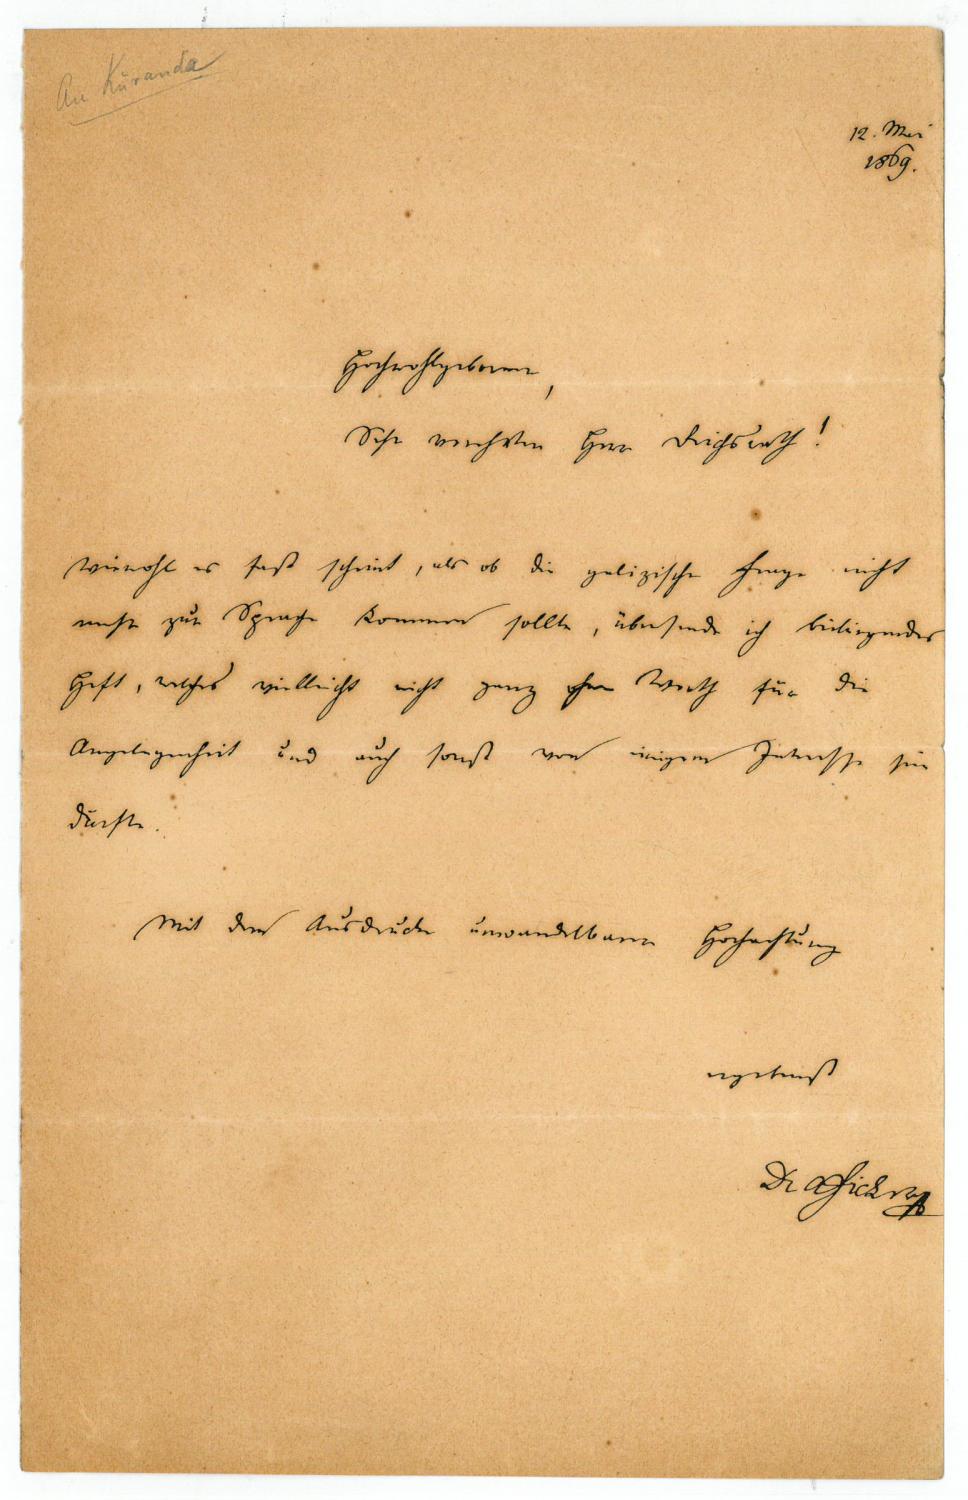 An Kuranda
12. Mai
1869.
Hochwohlgeboren,
Sehr verehrter Herr Reichsrath!
Wiewohl es fast scheint, als ob die galizische Frage nicht
mehr zur Sprache kommen sollte, übersende ich beiliegendes
Heft, welches vielleicht nicht ganz ohne Werth für die
Angelegenheit und auch sonst von einigem Interesse sein
dürfte.
Mit dem Ausdrucke unwandelbarer Hochachtung
ergebenst
Dr AFicker